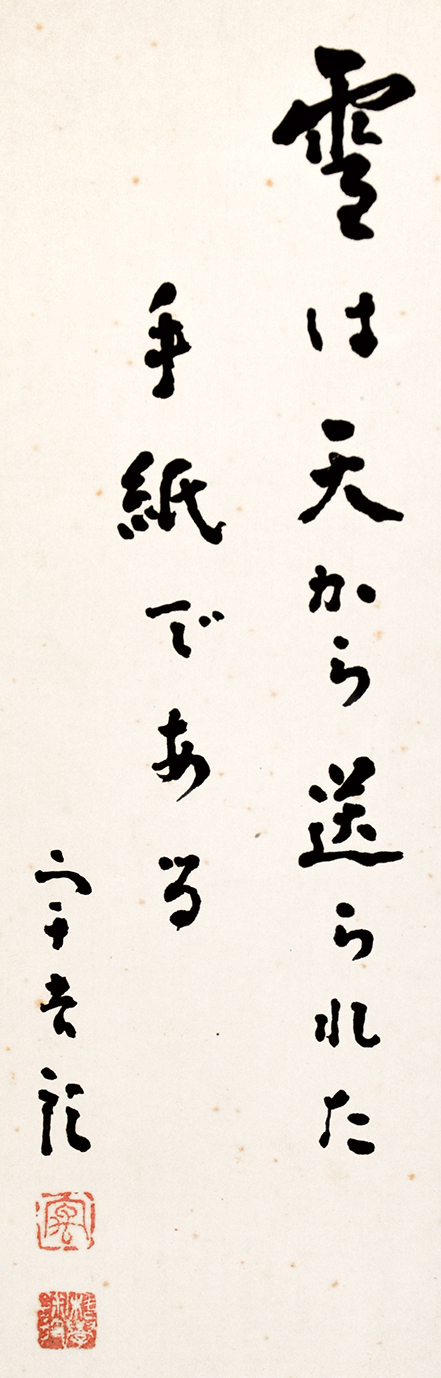 雪は天から送られた
手紙である
宇吉郎